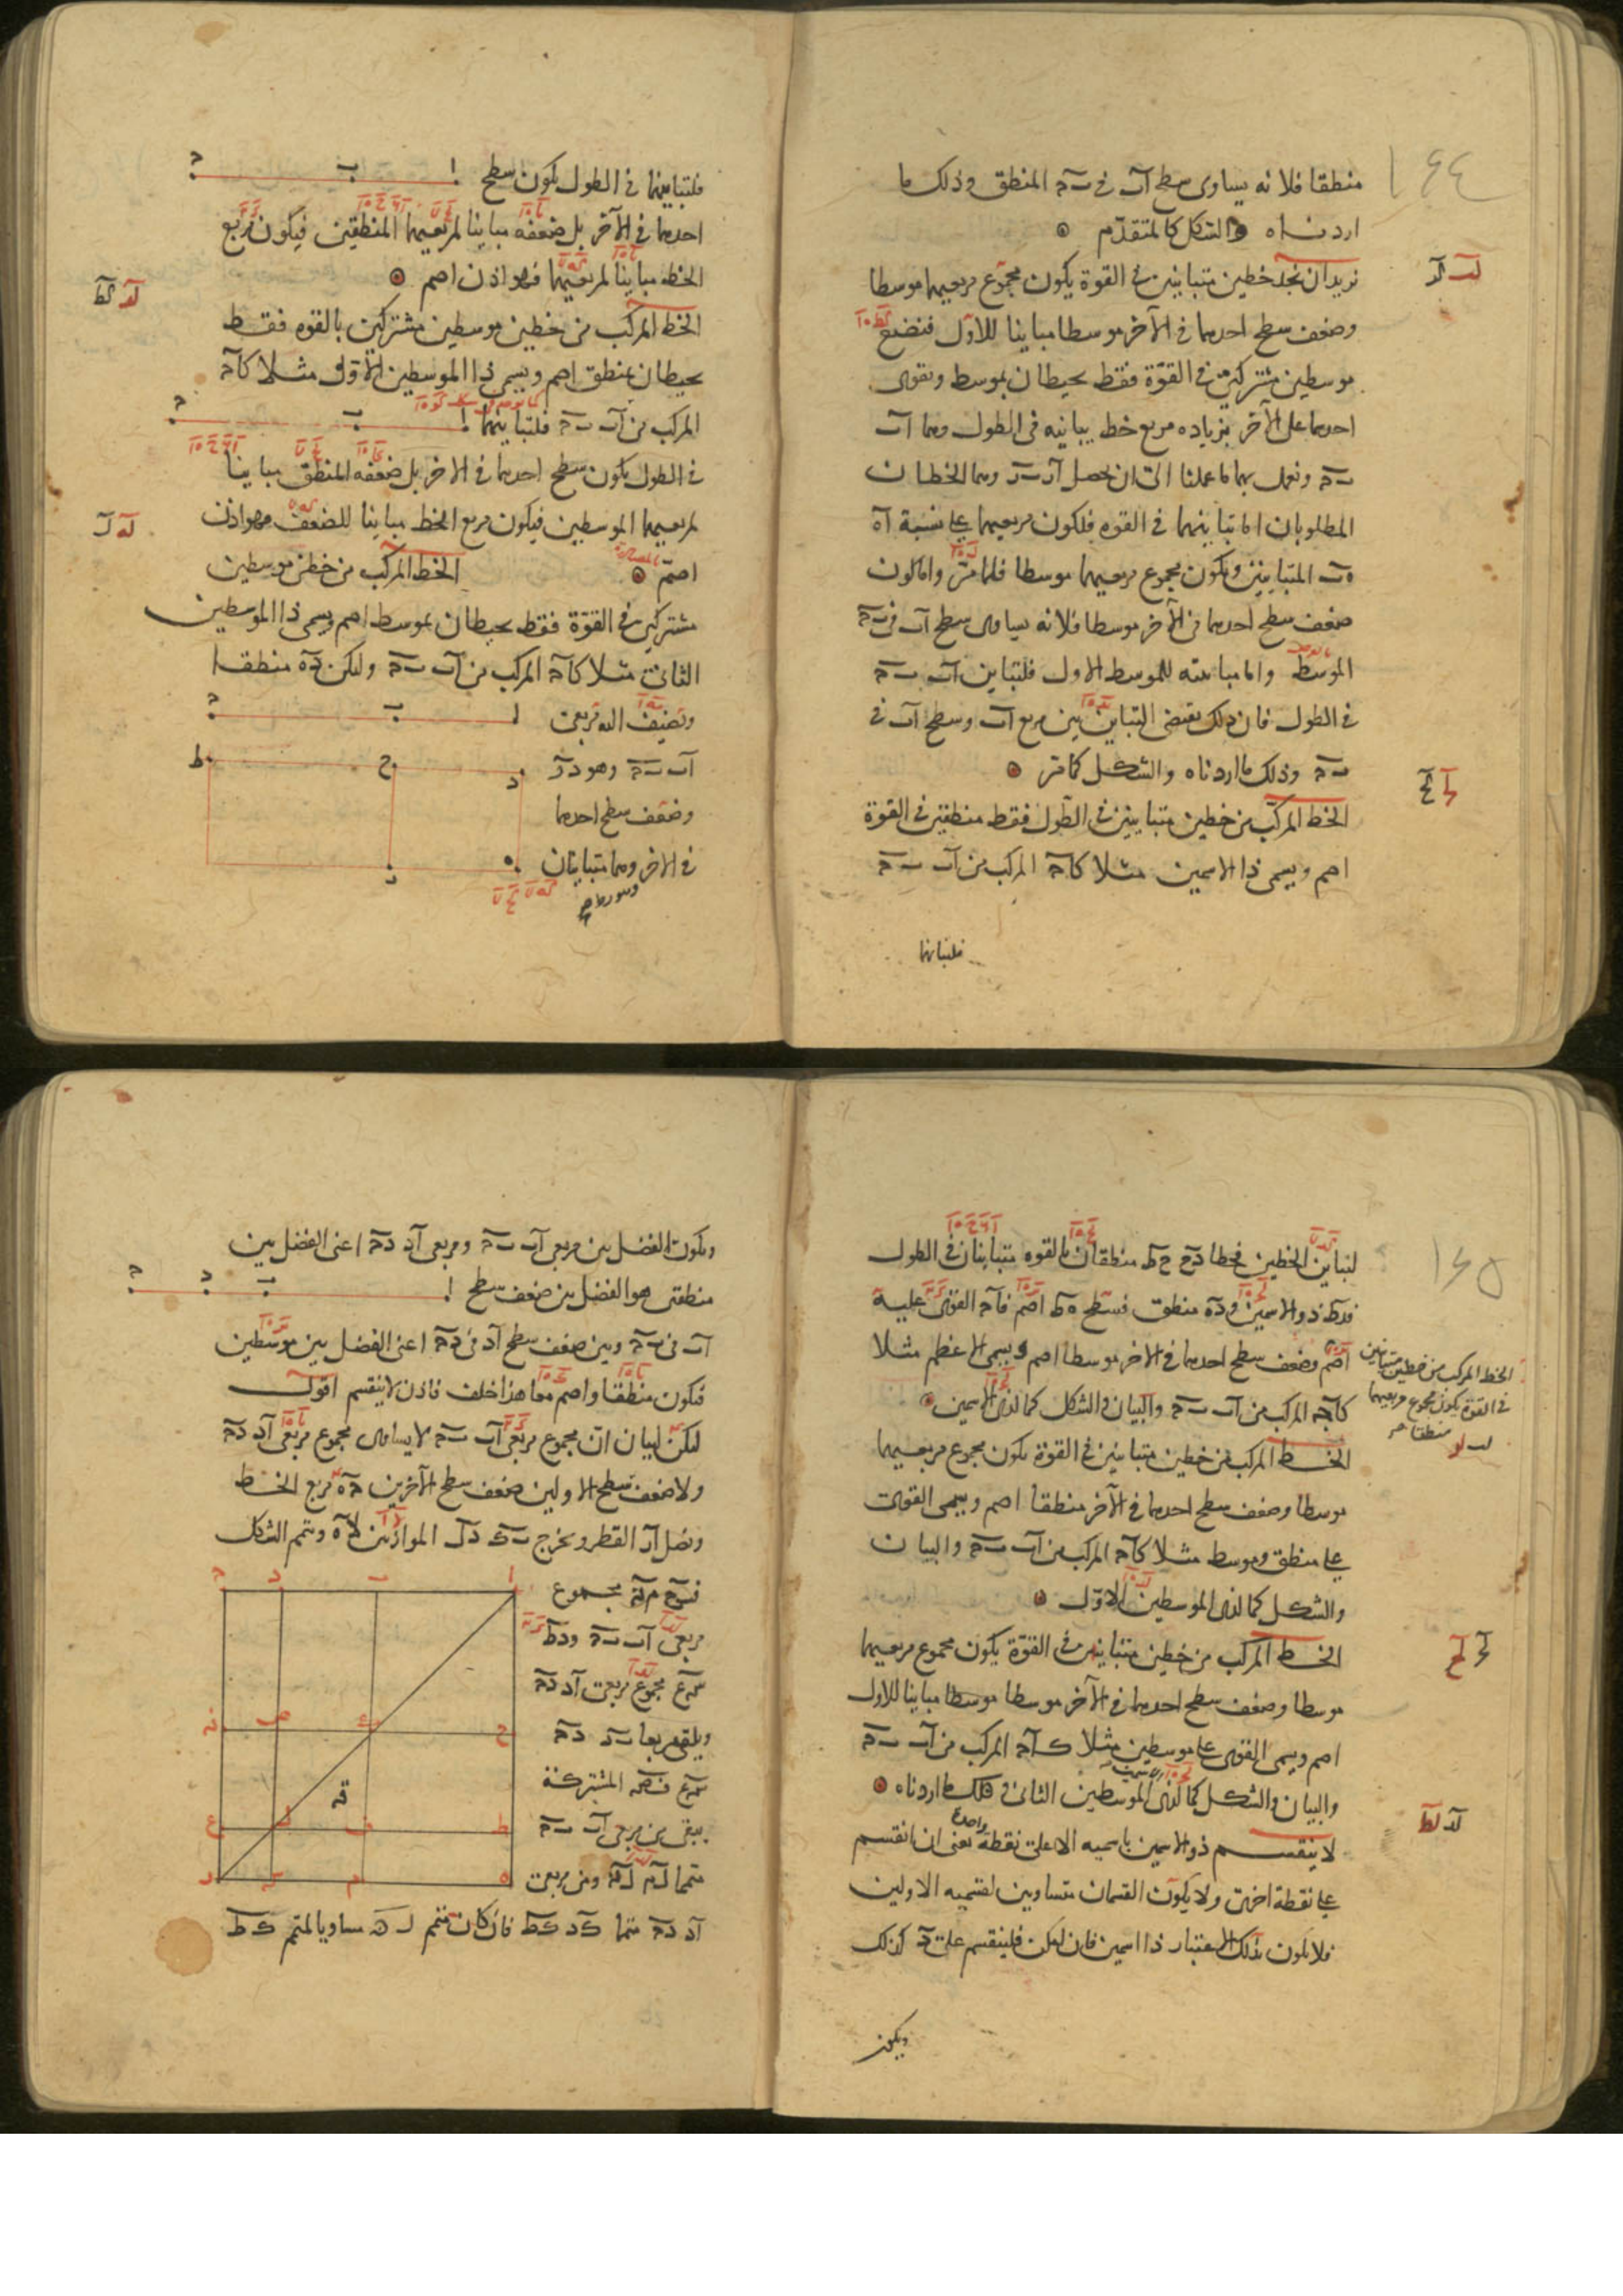 ١٤٤
منطقا فلانه يساوى سطح اب فى ب ج المنطق وذلك ما
اردناه والشكل كالمتقدم
نريد ان نجد خطين متباينين فى القوة يكون مجموع مربعيهما موسطا
وضعف سطح احدهما فى الآخر موسطا مباينا للاول فنضع
موسطين مشتركين فى القوة فقط يحيطان بموسط ويقوى
احدهما على الآخر بزيادة مربع خط يباينه فى الطول وهما اب
ب ج ونعمل بهما ما عملنا الى ان نحصل ار ب ر وهما الخطان
المطلوبان اما تباينهما فى القوه فلكون مربعيهما على نسبة اه
ه ب المتباينين ويكون مجموع مربعيهما موسطا فلما مر واما كون
ضعف سطح احدهما فى الآخر موسطا فلانه يساوى سطح اب فى ب ج
الموسط واما مباينته للموسط الاول فلتباين اب ب ج
فى الطول فان ذلك يقتضى التباين بين مربع اب وسطح اب فى
ب ج وذلك ما اردناه والشكل كما مر
الخط المركب من خطين متباينين فى الطول فقط منطقين فى القوة
اصم ويسمى ذا الاسمين مثلا كا ج المركب من اب ب ج
فلتباينهما
فلتباينهما فى الطول يكون سطح
احدهما فى الآخر بل ضعفه مباينا لمربعيهما المنطقين فيكون مربع
الخط مباينا لمربعيهما فهو اذن اصم
الخط المركب من خطين موسطين مشتركين بالقوه فقط
يحيطان بمنطق اصم ويسمى ذا الموسطين الاول مثلا كا ج
المركب من اب ب ج فلتباينهما
فى الطول يكون سطح احدهما فى الاخر بل ضعفه المنطق مباينا
لمربعيهما الموسطين فيكون مربع الخط مباينا للضعف فهو اذن
اصم الخط المركب من خطين موسطين
مشتركين فى القوة فقط يحيطان بموسط اصم ويسمى ذا الموسطين
الثانى مثلا كا ج المركب من اب ب ج وليكن ده منطقا
ونضيف اليه مربعى
اب ب ج وهو در
وضعف سطح احدهما
فى الاخر وهما متباينان
١٤٥
لتباين الخطين فخطا دح ح ط منطقان بالقوه متباينان فى الطول
فدط ذو الاسمين و ده منطق فسطح ه ط اصم فا ج القوى عليه
اصم وضعف سطح احدهما فى الاخر موسطا اصم ويسمى الاعظم مثلا
كا ج المركب من اب ب ج والبيان والشكل كما لذى الاسمين
الخط المركب من خطين متباينين
فى القوة يكون مجموع مربعيهما
منطقا
الخط المركب من خطين متباينين فى القوة يكون مجموع مربعيهما
موسطا وضعف سطح احدهما فى الآخر منطقا اصم ويسمى القوى
على منطق وموسط مثلا كا ج المركب من اب ب ج والبيان
والشكل كما لذى الموسطين الاول
الخط المركب من خطين متباينين فى القوة يكون مجموع مربعيهما
موسطا وضعف سطح احدهما فى الآخر موسطا مباينا للاول
اصم ويسمى القوى على موسطين مثلا كا ج المركب من اب ب ج
والبيان والشكل كما لذى الموسطين الثانى وذلك ما اردناه
لا ينقسم ذو الاسمين باسميه الا على نقطة واحدة يعنى ان انقسم
على نقطة اخرى ولا يكون القسمان متساويين لقسميه الاولين
فلا يكون بذلك الاعتبار ذا اسمين فان امكن فلينقسم على د كذلك
ويكون
ويكون الفضل بين مربعى اب ب ج ومربعى اد د ج اعنى الفضل بين
منطقين هو الفضل بين ضعف سطح
اب فى ب ج وبين ضعف سطح اد فى د ج اعنى الفضل بين موسطين
فيكون منطقا واصم معا هذا خلف فاذن لا ينقسم اقول
ليكن لبيان ان مجموع مربعى اب ب ج لا يساوى مجموع مربعى اد د ج
ولا ضعف سطح الاولين ضعف سطح الآخرين ج ه مربع الخط
ونصل ار القطر ونخرج ب ك د ل الموازيين لاه ونتمم الشكل
مجموع
مربعى اب ب ج
مجموع مربعى اد د ج
المشتركة
يبقى من مربعى اب ب ج
ومن مربعى
اد د ج متمما فان كان متمم مساويا لمتمم